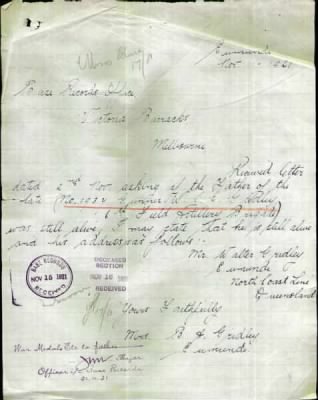 Eumundi
Nov 1921
Base Records Office
Victoria Barracks
Melbourne
Received letter
dated 2nd Nov. asking if the Father of the
late No. 1934 Gunner W. Gridley
6th Field Artillery Brigade
was still alive, I may state that he is still alive
and his address as follows:-
Mr. Walter Gridley
Eumundi
North Coast Line
Queensland
BASE RECORDS
NOV 16 1921
RECEIVED
DECEASED
SECTION
NOV 16 1921
RECEIVED
Yours Faithfully
B. A. Gridley
Eumundi
War Medals Etc to father
Major
Officer i/c Base Records
21.11.21